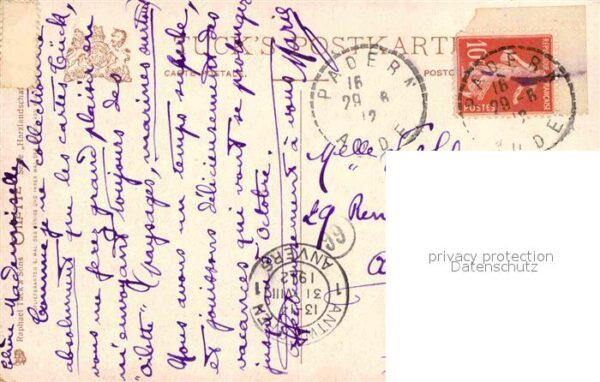 TUCK'S POSTKARTE
CARTE POSTALE.
POSTC
Raphael Tuck & Sons "OILETTE" Serie "Harzlandschaf
HOFLIEFERANTEN S. MAJ. DES KÖNIGS UND IHRER MAJ.
Chère Mademoiselle,
Comme je ne collectionne
absolument que les cartes Tück,
vous me ferez grand plaisir en
m'envoyant toujours des
"oilette" (paysages, marines surtout)
Nous avons un temps superbe,
et jouissons délicieusement des
vacances qui vont se prolonger
jusqu'en Octobre.
à vous Marie
Melle
29 Ren
PADERN
16
29 8
12
AUDE
PADERN
16
29 8
12
AUDE
10
POSTES
FRANÇAISE
99
ANTWERPEN
13-
31 VIII
1912
ANVERS
privacy protection
Datenschutz